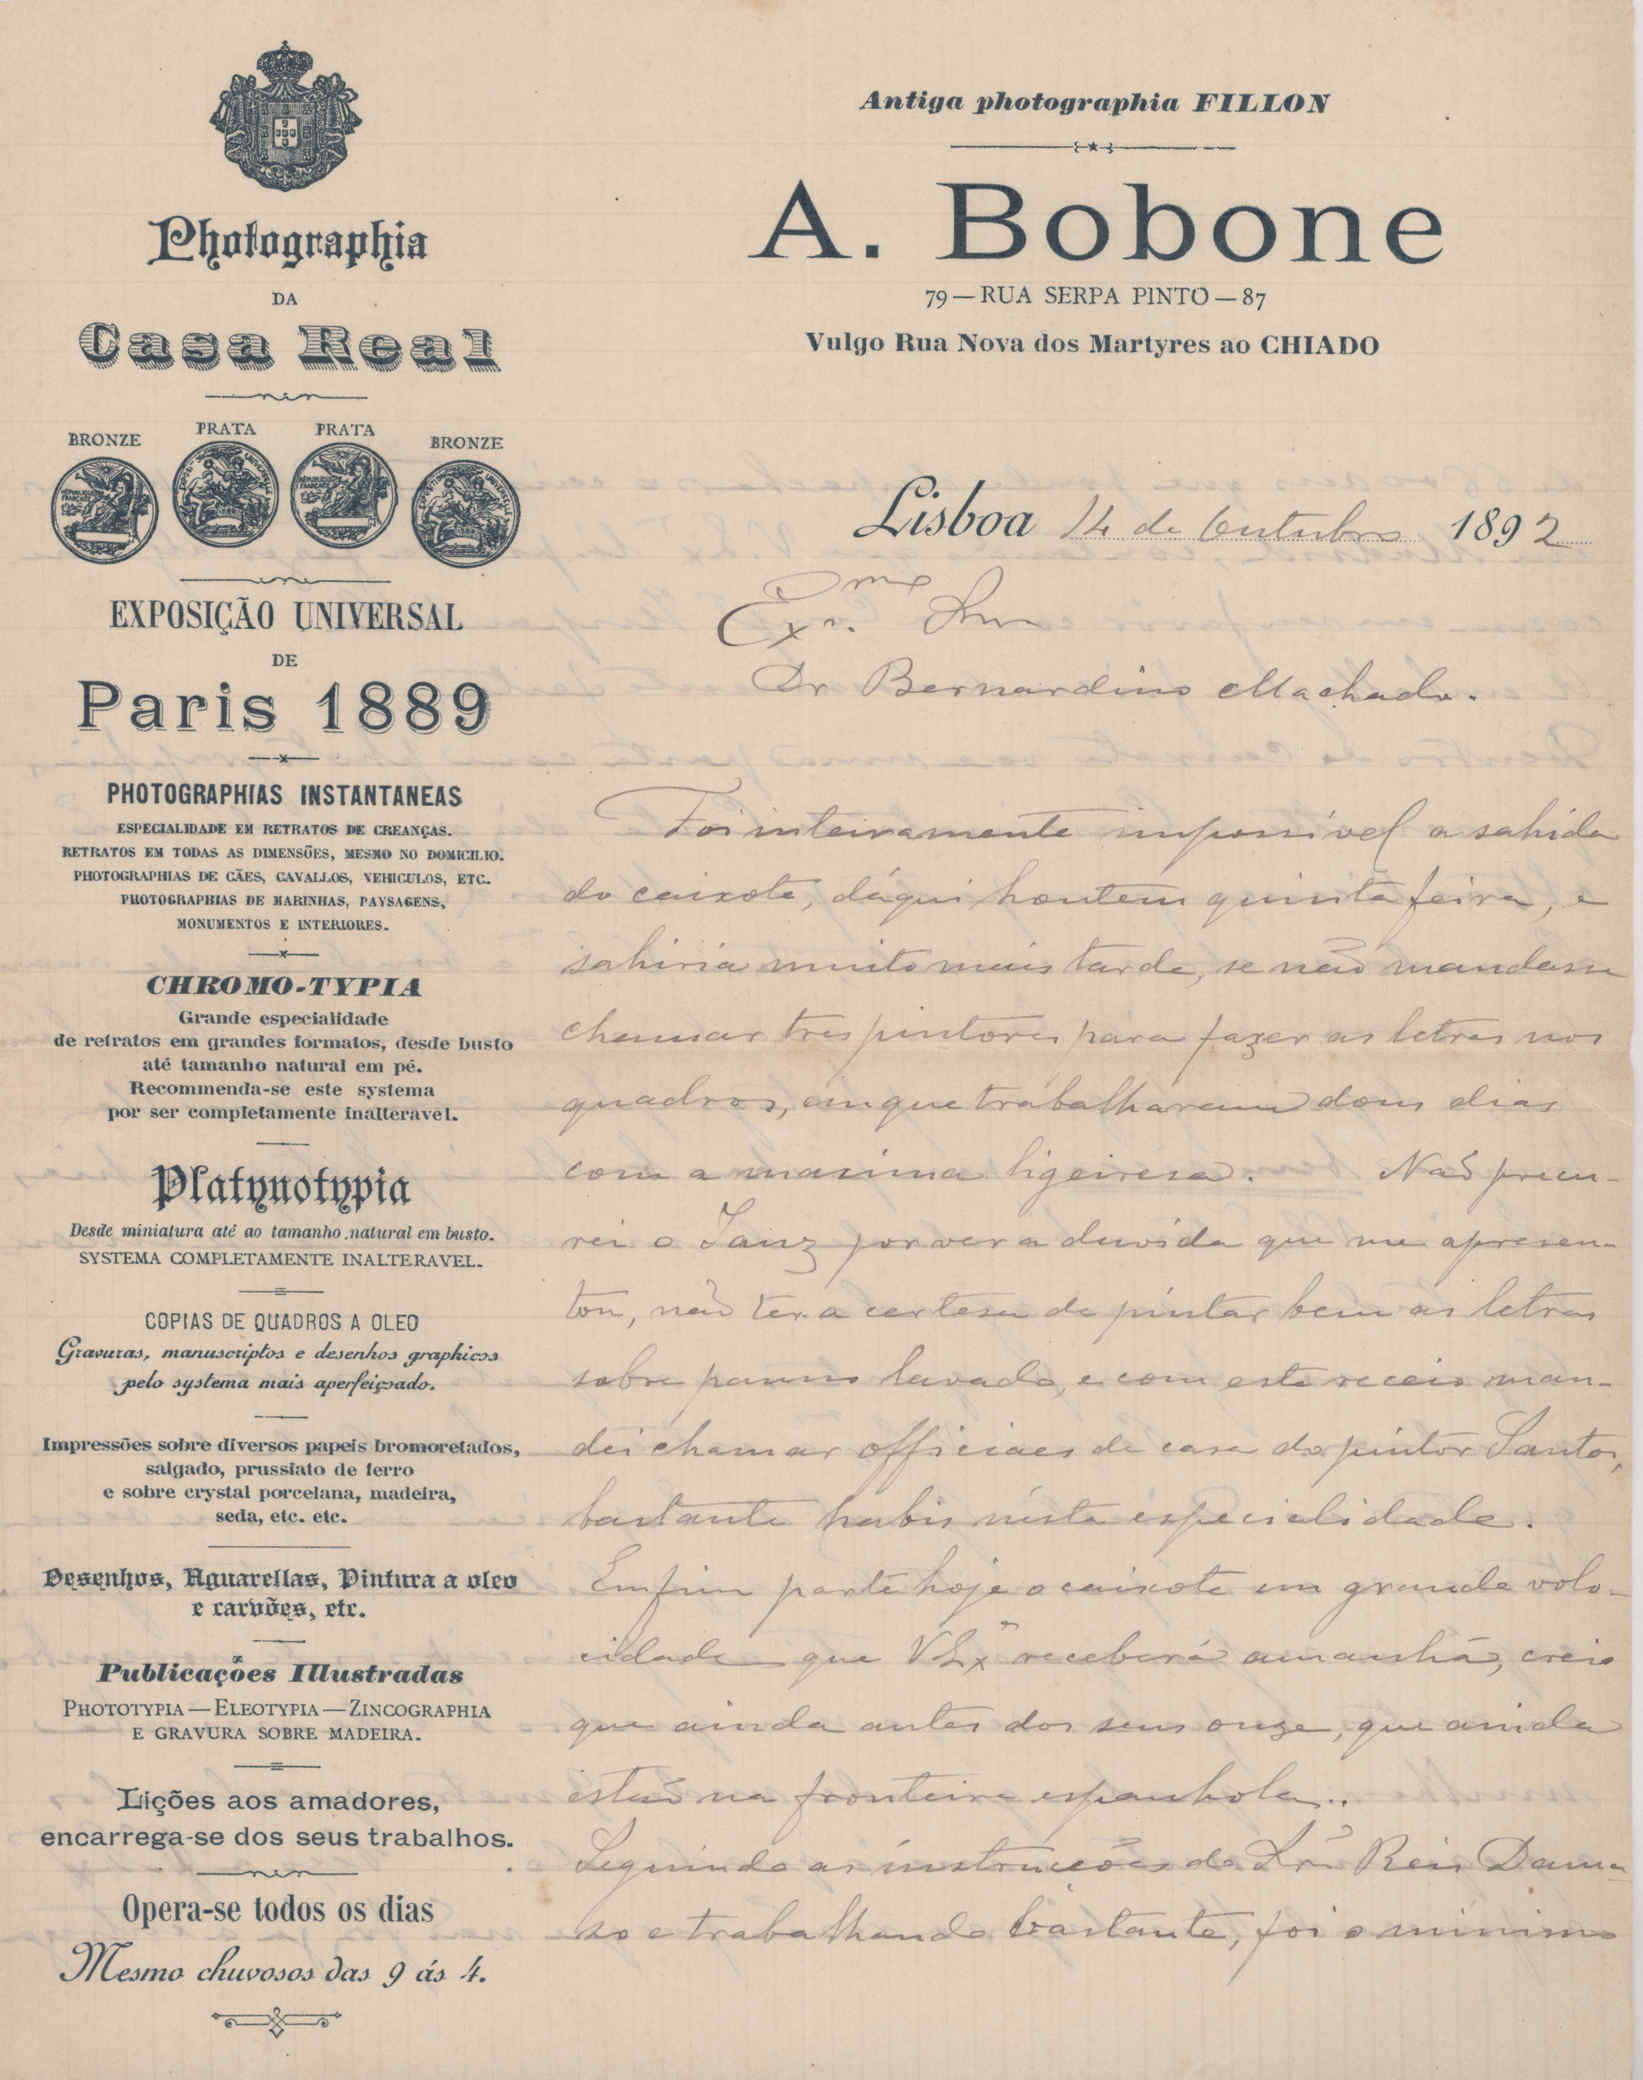 Photographia
DA
Casa Real
BRONZE PRATA PRATA BRONZE
EXPOSIÇÃO UNIVERSAL
DE
Paris 1889
PHOTOGRAPHIAS INSTANTANEAS
ESPECIALIDADE EM RETRATOS DE CREANÇAS.
RETRATOS EM TODAS AS DIMENSÕES, MESMO NO DOMICILIO.
PHOTOGRAPHIAS DE CÃES, CAVALLOS, VEHICULOS, ETC.
PHOTOGRAPHIAS DE MARINHAS, PAYSAGENS,
MONUMENTOS E INTERIORES.
CHROMO-TYPIA
Grande especialidade
de retratos em grandes formatos, desde busto
até tamanho natural em pé.
Recommenda-se este systema
por ser completamente inalteravel.
Platynotypia
Desde miniatura até ao tamanho natural em busto.
SYSTEMA COMPLETAMENTE INALTERAVEL.
COPIAS DE QUADROS A OLEO
Gravuras, manuscriptos e desenhos graphicos
pelo systema mais aperfeiçoado.
Impressões sobre diversos papeis bromoretados,
salgado, prussiato de ferro
e sobre crystal porcelana, madeira,
seda, etc. etc.
Desenhos, Aguarellas, Pintura a oleo
e carvões, etc.
Publicações Illustradas
PHOTOTYPIA—ELEOTYPIA—ZINCOGRAPHIA
E GRAVURA SOBRE MADEIRA.
Lições aos amadores,
encarrega-se dos seus trabalhos.
Opera-se todos os dias
Mesmo chuvosos das 9 ás 4.
Antiga photographia FILLON
A. Bobone
79—RUA SERPA PINTO—87
Vulgo Rua Nova dos Martyres ao CHIADO
Lisboa 14 de Outubro 1892
Exmo Snr
Dr Bernardino Machado.
Foi inteiramente impossivel a sahida
do caixote, dáqui hontem quinta feira, e
sahiria muito mais tarde, se não mandasse
chamar tres pintores para fazer as letras nos
quadros, em que trabalharam dous dias
com a maxima ligeiresa. Não procu-
rei o Sanz por ver a duvida que me apresen-
tou, não ter a certesa de pintar bem as letras
sobre panno lavado, e com este receio man-
dei chamar officiaes de casa do pintor Santos,
bastante habis nésta especialidade.
Emfim parte hoje o caixote em grande velo-
cidade que V Exa receberá amanhã, creio
que ainda antes dos seus onze, que ainda
estão na fronteira espanhola..
Seguindo as instrucções do Sr. Reis Dama-
so e trabalhando bastante, foi o minimo